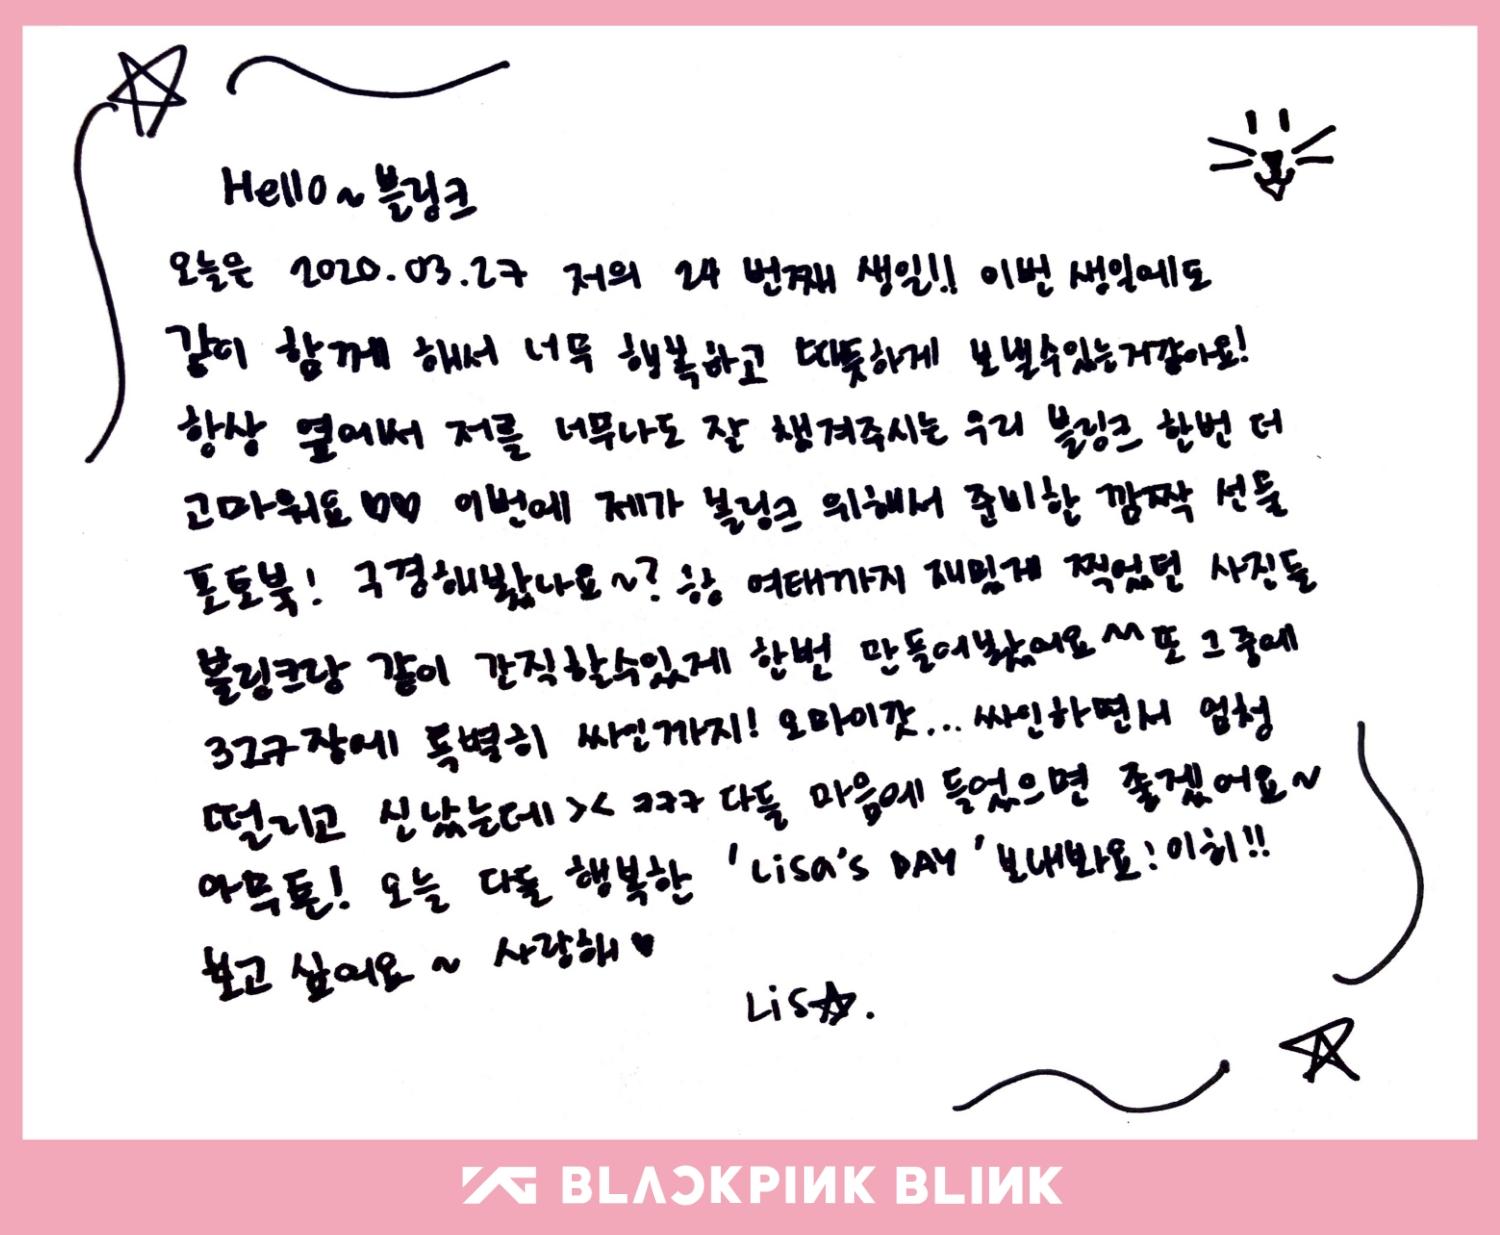 Hello~ 블링크
오늘은 2020.03.27 저의 24 번째 생일!! 이번 생일에도
같이 함께 해서 너무 행복하고 따뜻하게 보낼수있는거같아요!
항상 옆에서 저를 너무나도 잘 챙겨주시는 우리 블링크 한번 더
고마워요♡♡ 이번에 제가 블링크 위해서 준비한 깜짝 선물
포토북! 구경해봤나요~? 항항 여태까지 재밌게 찍었던 사진들
블링크랑 같이 간직할수있게 한번 만들어봤어요^^ 또 그 중에
327장에 특별히 싸인까지! 오마이갓... 싸인하면서 엄청
떨리고 신났는데>< ㅋㅋㅋ 다들 마음에 들었으면 좋겠어요~
아무튼! 오늘 다들 행복한 'Lisa's DAY' 보내봐요! 이히!!
보고 싶어요~ 사랑해♥
Lis☆.
YG BLACKPINK BLINK